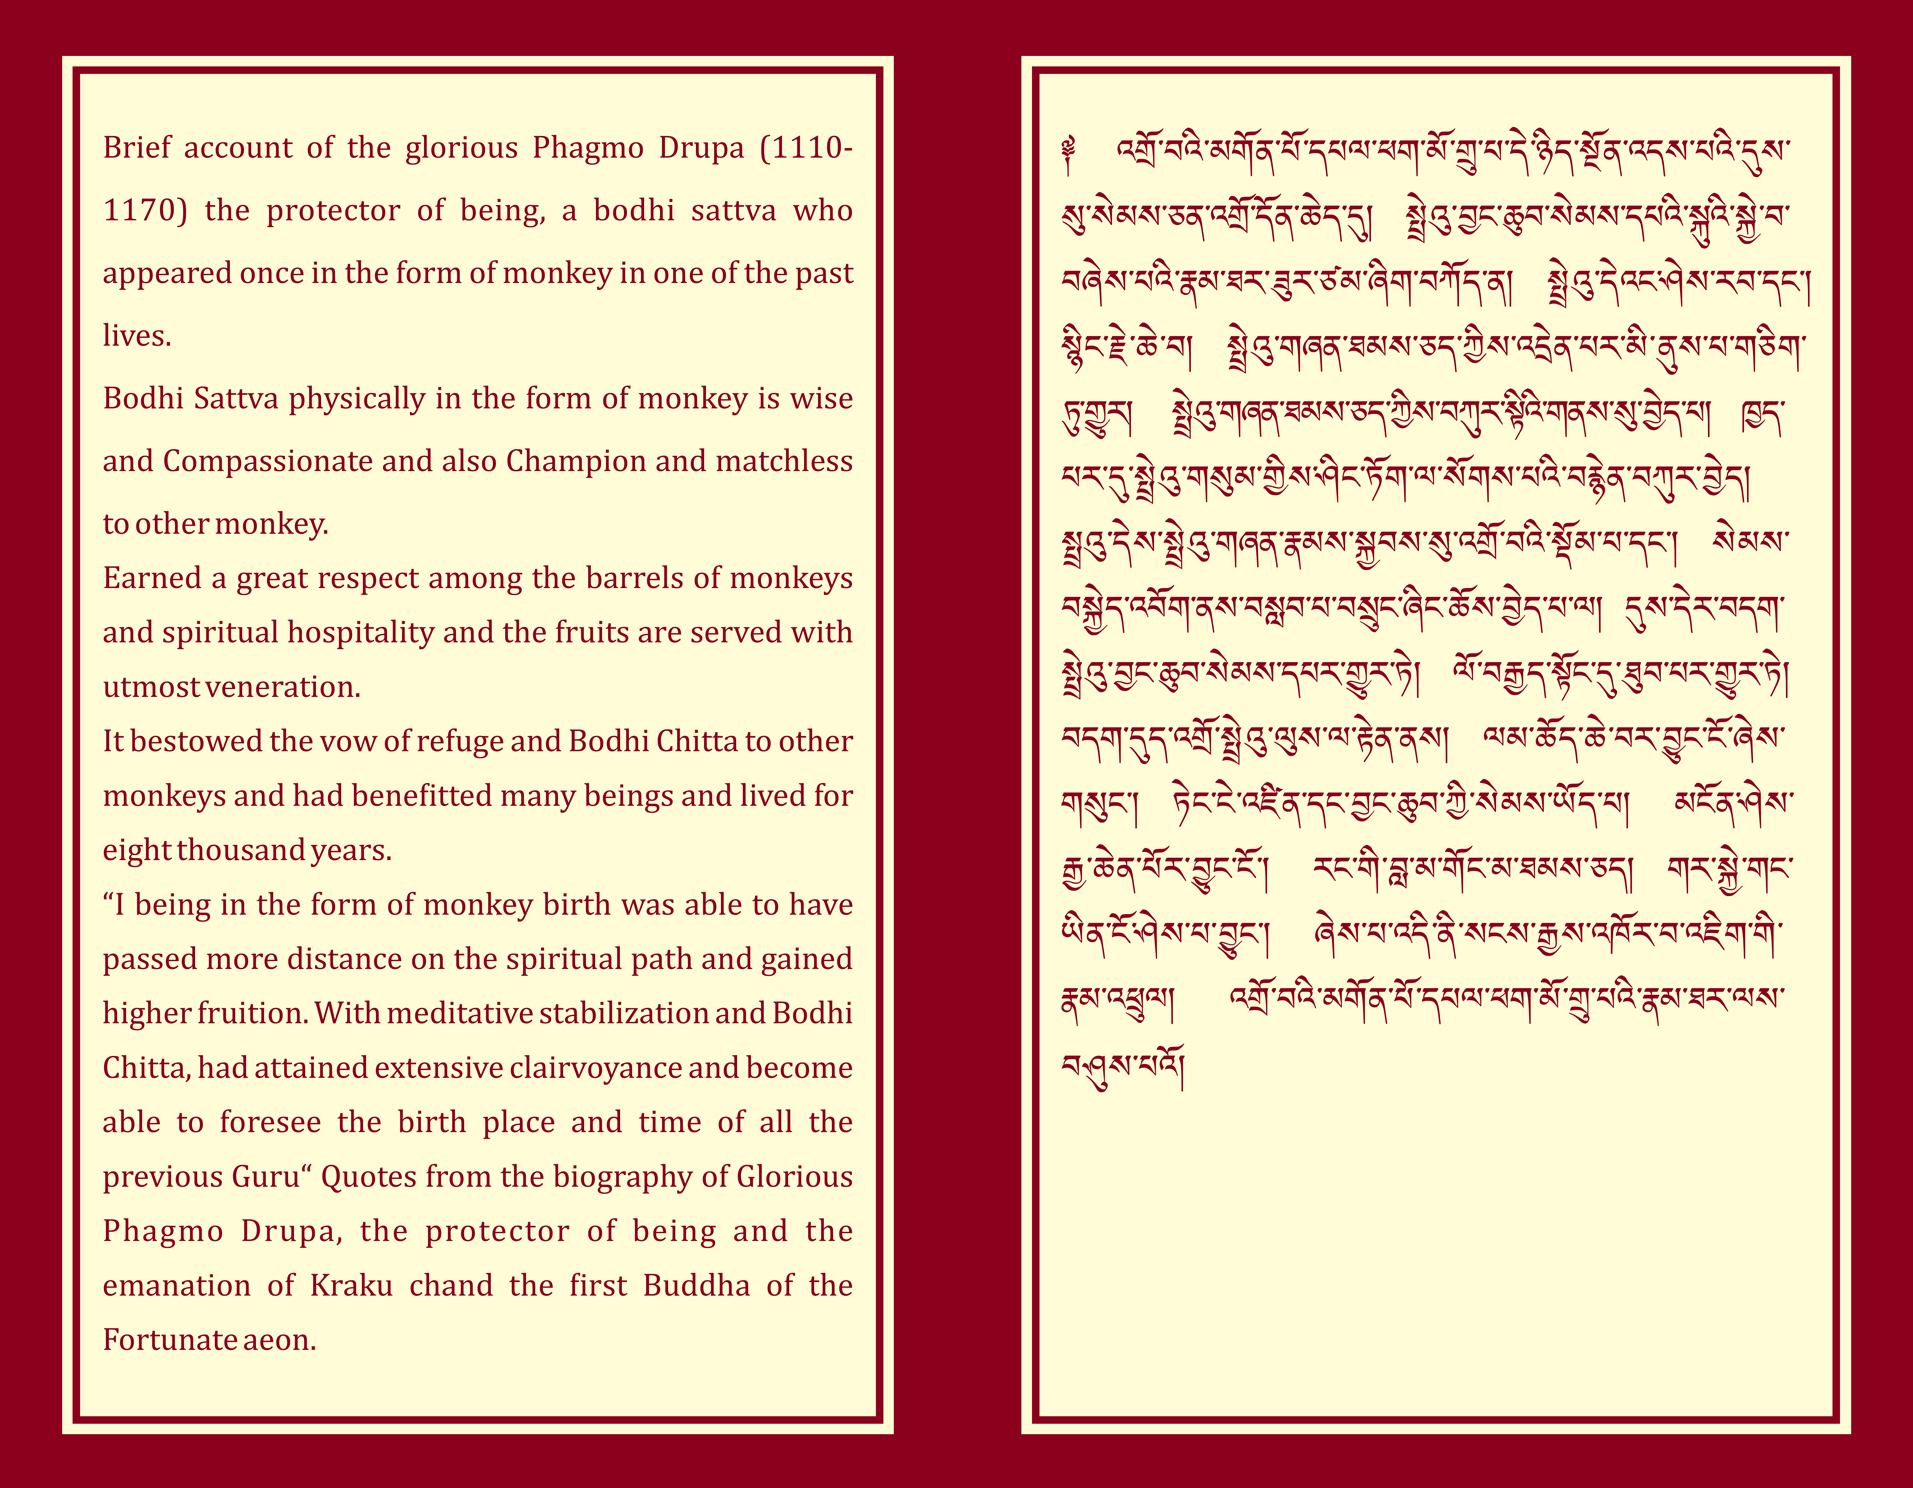 Brief account of the glorious Phagmo Drupa (1110-
1170) the protector of being, a bodhi sattva who
appeared once in the form of monkey in one of the past
lives.
Bodhi Sattva physically in the form of monkey is wise
and Compassionate and also Champion and matchless
to other monkey.
Earned a great respect among the barrels of monkeys
and spiritual hospitality and the fruits are served with
utmost veneration.
It bestowed the vow of refuge and Bodhi Chitta to other
monkeys and had benefitted many beings and lived for
eight thousand years.
“I being in the form of monkey birth was able to have
passed more distance on the spiritual path and gained
higher fruition. With meditative stabilization and Bodhi
Chitta, had attained extensive clairvoyance and become
able to foresee the birth place and time of all the
previous Guru“ Quotes from the biography of Glorious
Phagmo Drupa, the protector of being and the
emanation of Kraku chand the first Buddha of the
Fortunate aeon.
༈ འགྲོ་བའི་མགོན་པོ་དཔལ་ཕག་མོ་གྲུ་པ་དེ་ཉིད་སྔོན་འདས་པའི་དུས་
སུ་སེམས་ཅན་འགྲོ་དོན་ཆེད་དུ། སྤྲེའུ་བྱང་ཆུབ་སེམས་དཔའི་སྐུའི་སྐྱེ་བ་
བཞེས་པའི་རྣམ་ཐར་ཟུར་ཙམ་ཞིག་བཀོད་ན། སྤྲེའུ་དེའང་ཤེས་རབ་དང་།
སྙིང་རྗེ་ཆེ་བ། སྤྲེའུ་གཞན་ཐམས་ཅད་ཀྱིས་འདྲེན་པར་མི་ནུས་པ་གཅིག་
ཏུ་གྱུར། སྤྲེའུ་གཞན་ཐམས་ཅད་ཀྱིས་བཀུར་སྟིའི་གནས་སུ་བྱེད་པ། ཁྱད་
པར་དུ་སྤྲེའུ་གསུམ་གྱིས་ཤིང་ཏོག་ལ་སོགས་པའི་བརྙེན་བཀུར་བྱེད།
སྤྲའུ་དེས་སྤྲེའུ་གཞན་རྣམས་སྐྱབས་སུ་འགྲོ་བའི་སྡོམ་པ་དང་། སེམས་
བསྐྱེད་འབོག་ནས་བསླབ་པ་བསྲུང་ཞིང་ཆོས་བྱེད་པ་ལ། དུས་དེར་བདག་
སྤྲེའུ་བྱང་ཆུབ་སེམས་དཔར་གྱུར་ཏེ། ལོ་བརྒྱད་སྟོང་དུ་ཐུབ་པར་གྱུར་ཏེ།
བདག་དུད་འགྲོ་སྤྲེའུ་ལུས་ལ་རྟེན་ནས། ལམ་ཆོད་ཆེ་བར་བྱུང་ངོ་ཞེས་
གསུང་། ཏེང་ངེ་འཛིན་དང་བྱང་ཆུབ་ཀྱི་སེམས་ཡོད་པ། མངོན་ཤེས་
རྒྱ་ཆེན་པོར་བྱུང་ངོ་། རང་གི་བླ་མ་གོང་མ་ཐམས་ཅད། གར་སྐྱེ་གང་
ཡིན་ངོ་ཤེས་པ་བྱུང་། ཞེས་པ་འདི་ནི་སངས་རྒྱས་འཁོར་བ་འཇིག་གི་
རྣམ་འཕྲུལ། འགྲོ་བའི་མགོན་པོ་དཔལ་ཕག་མོ་གྲུ་པའི་རྣམ་ཐར་ལས་
བཤུས་པའོ།